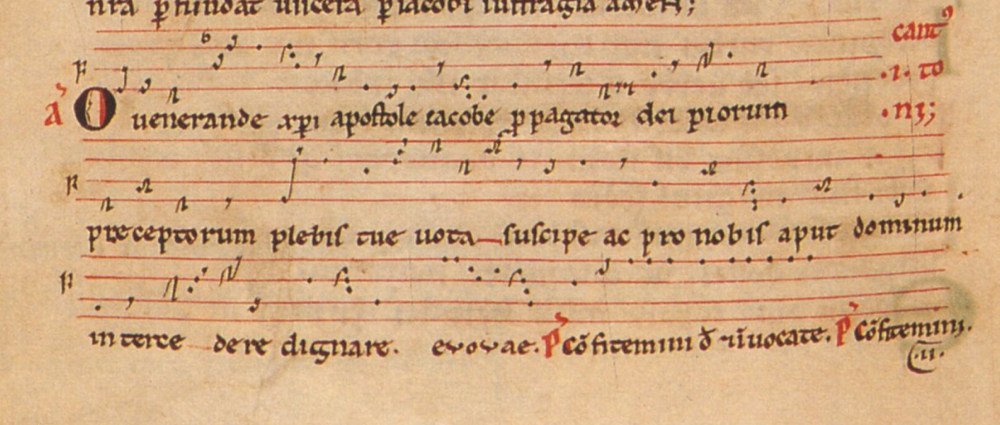 nr̄a ꝑfundat uiscera ꝑ iacobi suffragia amen;
cantꝰ
.i. to
A O uenerande xp̄i apostole iacobe ꝓpagator dei piorum .nꝫ;
preceptorum plebis tue uota suscipe ac pro nobis aput dominum
intercedere dignare. evovae. P Cōfitemini d̄ ⁊ īuocate. P Cōfitemini.
.ii.